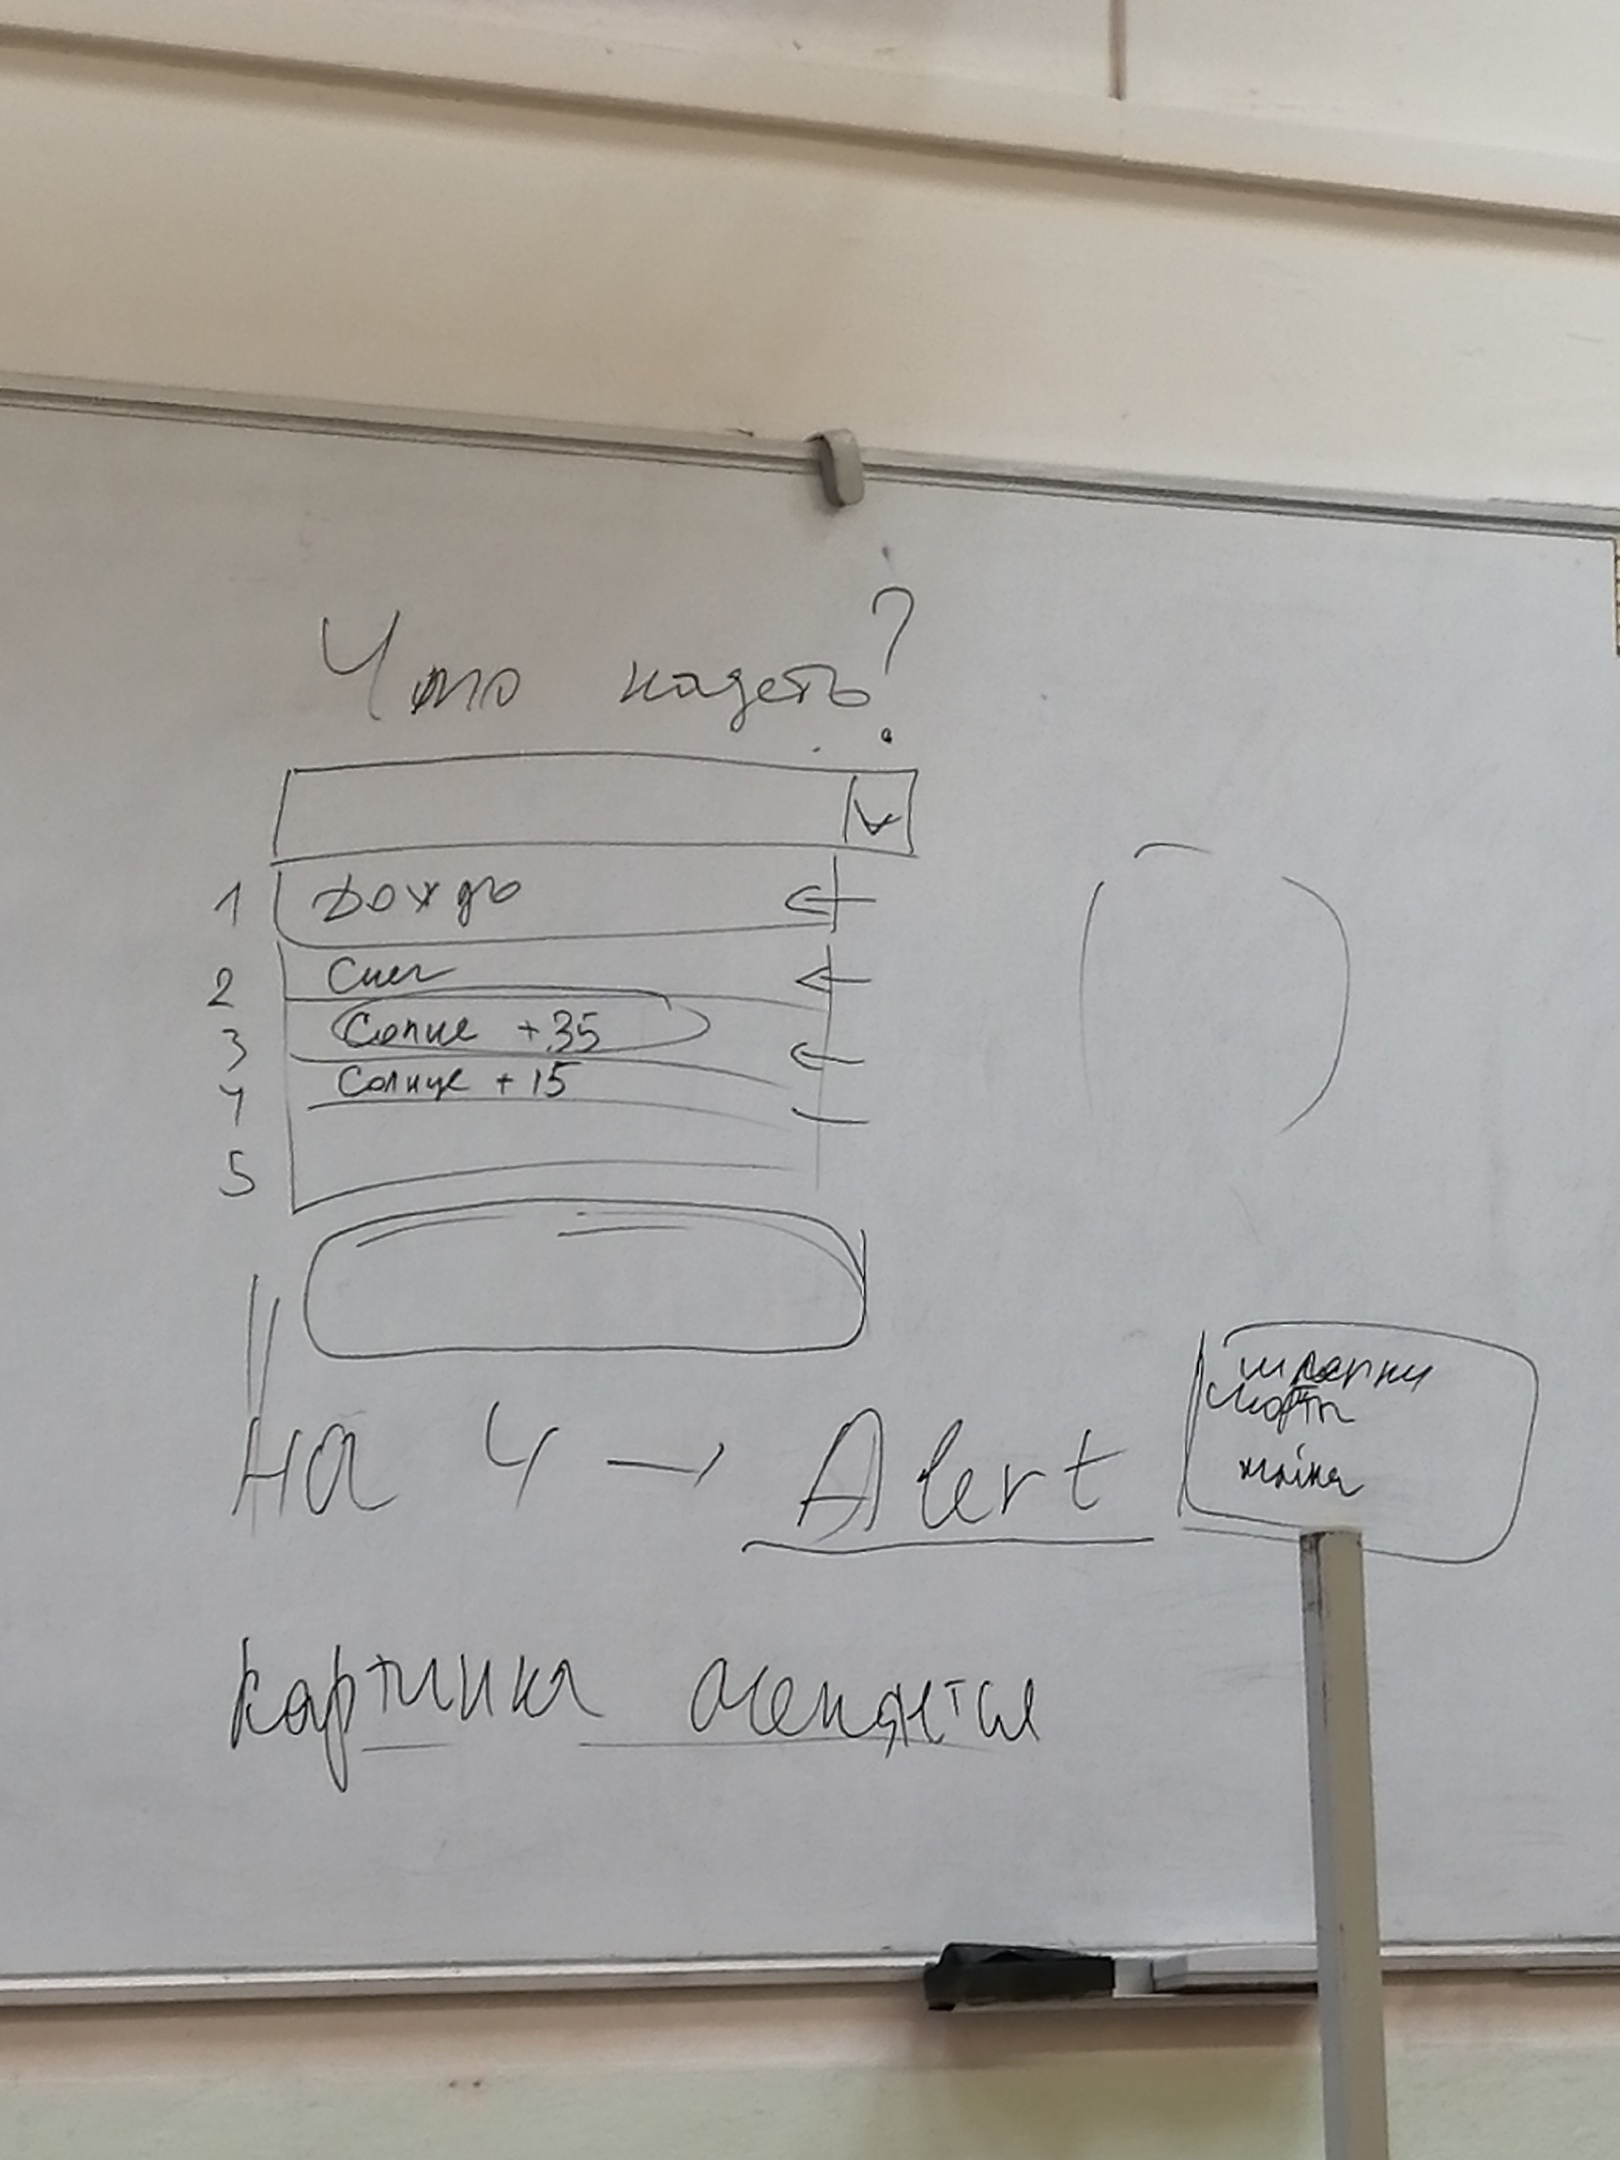 Что надеть?
1 Дождь
2 Снег
3 Солнце +35
4 Солнце +15
5
На 4 → Alert
шлепки
шорты
майка
картинка меняется